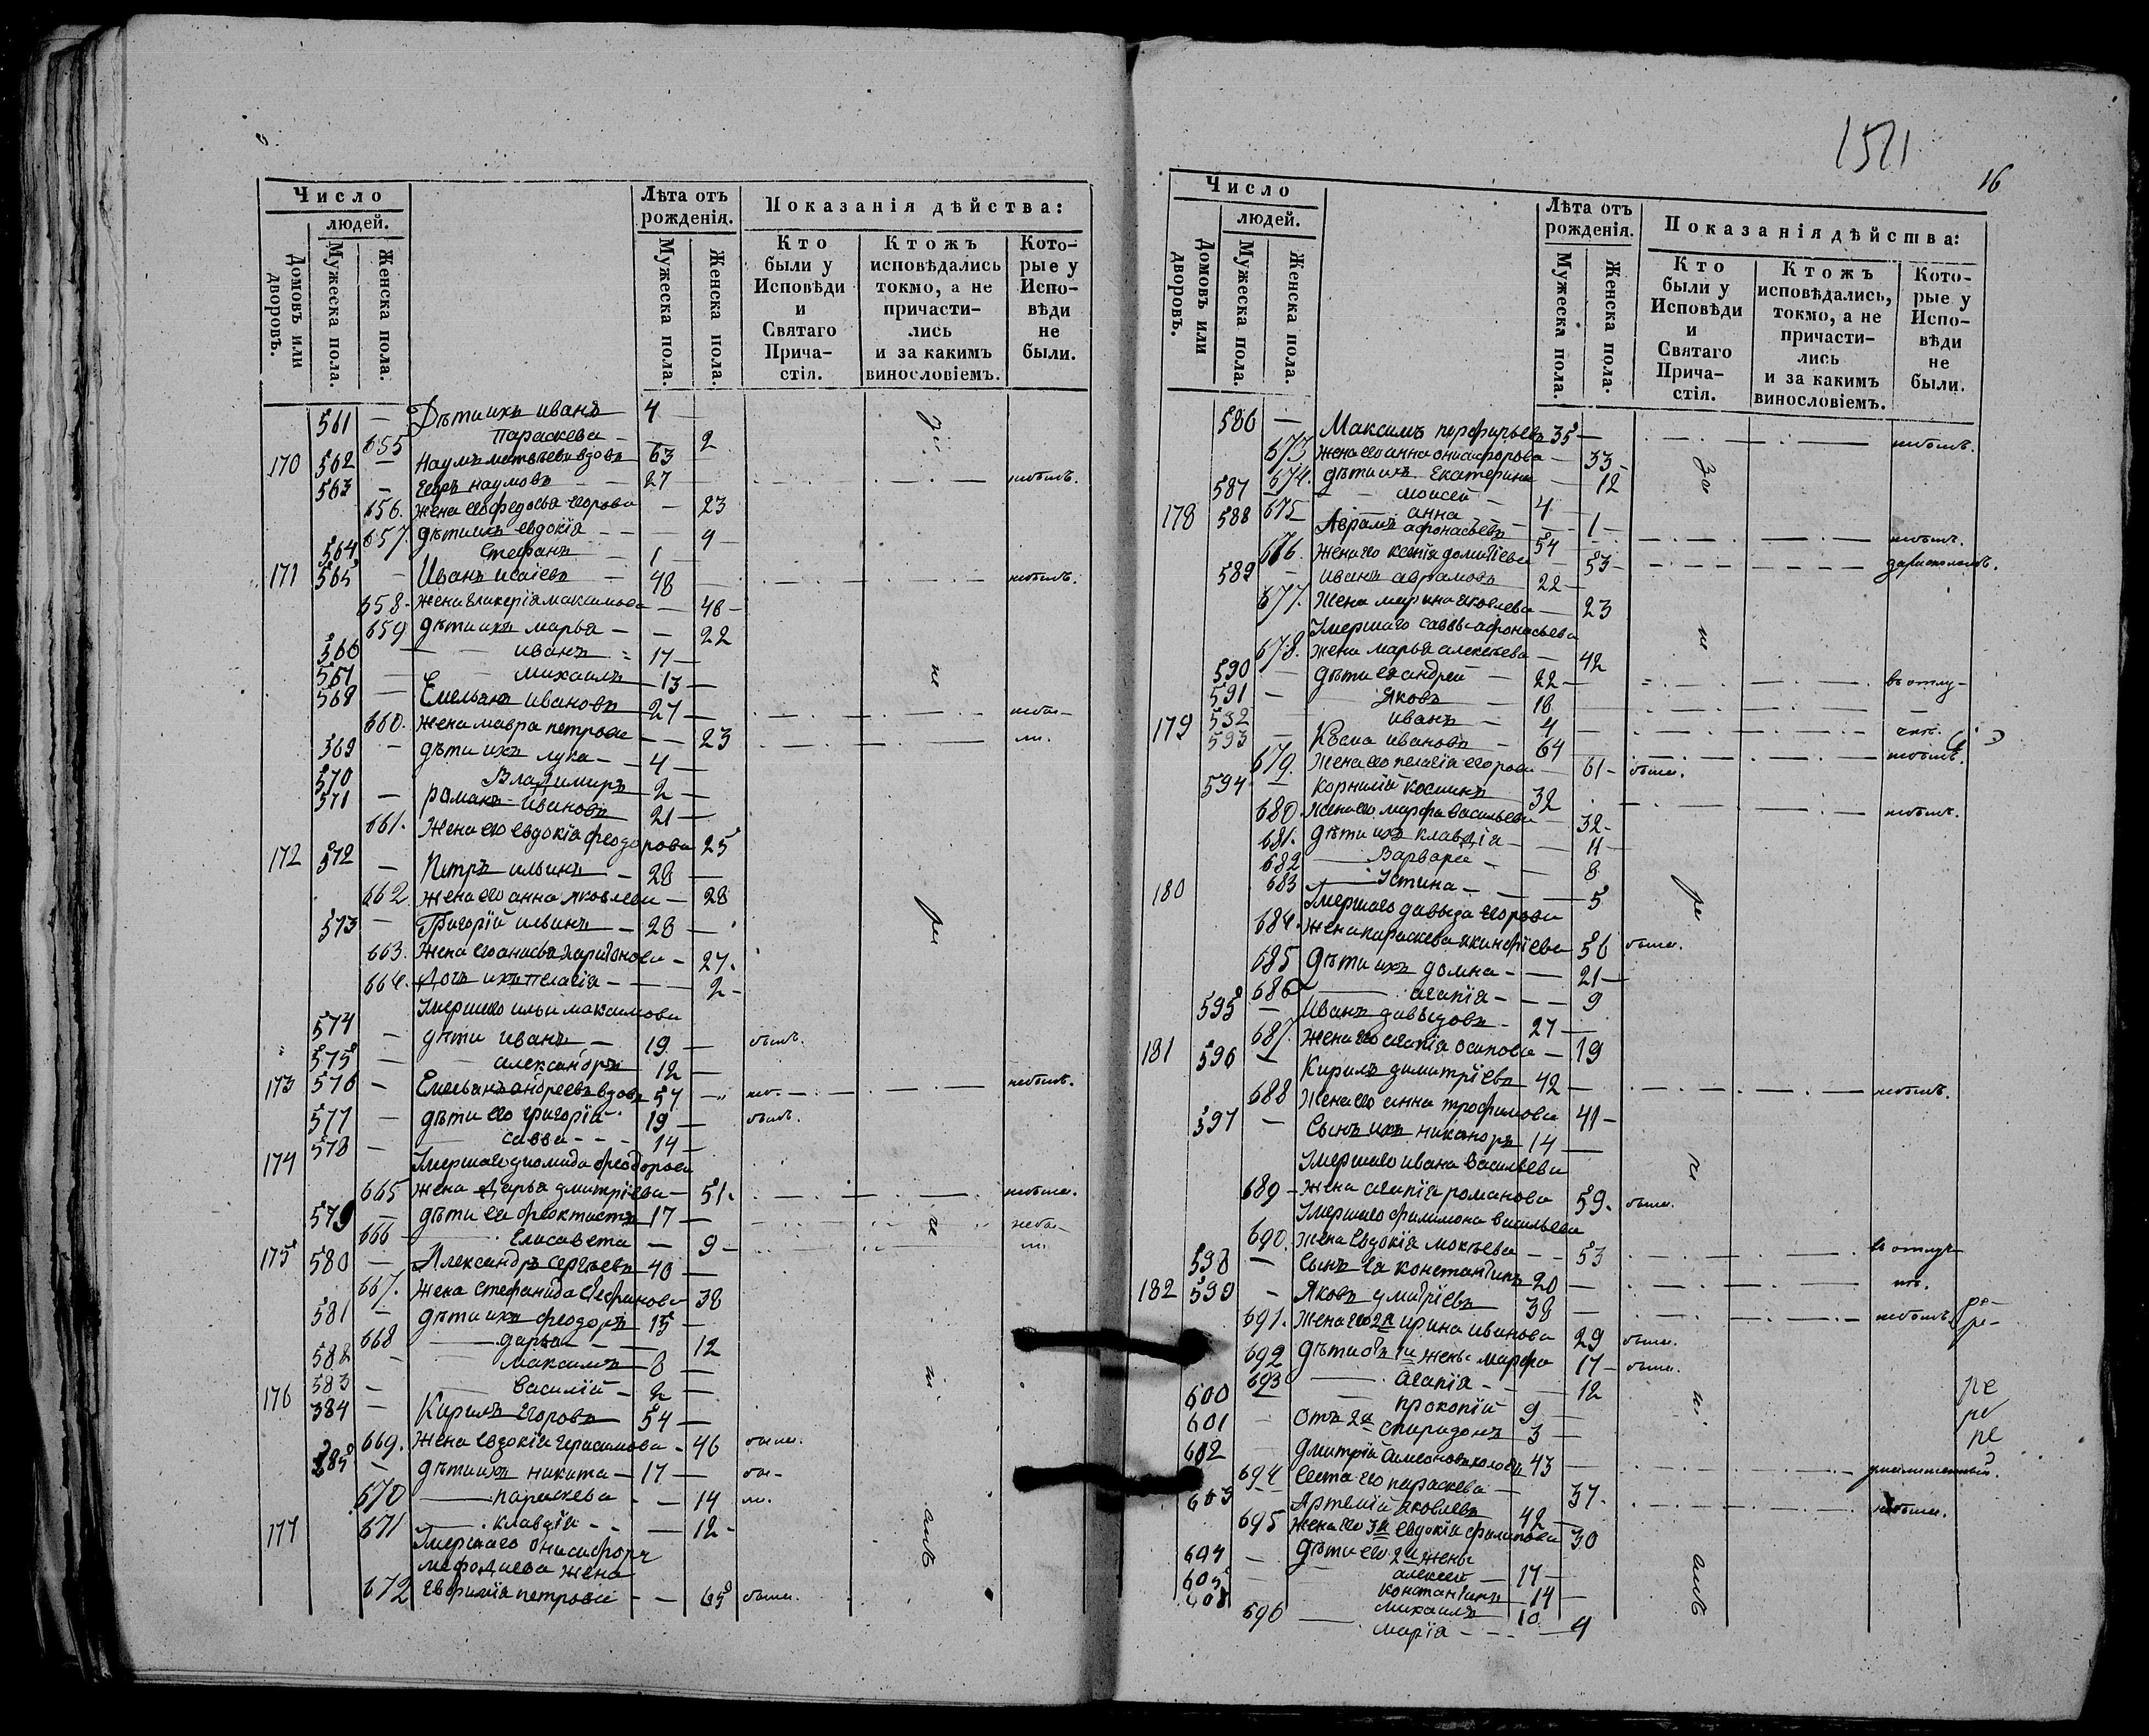 Число
людей.
Домовъ или дворовъ.
Мужеска пола.
Женска пола.
Лѣта отъ рожденія.
Мужеска пола.
Женска пола.
Показанія дѣйства:
Кто были у Исповѣди и Святаго Прича-стія.
Ктожъ исповѣдались токмо, а не причасти-лись и за какимъ винословіемъ.
Кото-рые у Испо-вѣди не были.
561 — Дѣти ихъ иванъ 4 —
655 Параскева — — 2
170 562 — Наумъ матвѣевъ вдовъ 63 —
563 — Егоръ наумовъ — 27 — небылъ.
656. Жена его федосья егорова — 23
657. дѣти ихъ евдокія — — 9
564 Стефанъ — 1 —
171 565 — Иванъ исаіевъ — 48 — небылъ.
658. Жена гликерія максимова — 46 —
659 дѣти ихъ марья — — 22
566 — иванъ 17 —
567 — михаилъ 13 —
568 — Емельянъ ивановъ 27 — небы—
660. Жена мавра петрова — 23 ли.
569 — дѣти ихъ лука — 4 —
570 Владимиръ 2 —
571 — романъ ивановъ 21 —
661. Жена его евдокія феодорова 25
172 572 — Петръ ильинъ — 28 —
662. Жена его анна яковлева — 28
573 — Григорій ильинъ — 28 —
663. Жена его анисья харитонова — 27.
664. дочь ихъ пелагія — — 2 —
Умершаго ильи максимова
574 — дѣти иванъ — 19 — былъ.
575 — александръ 12 —
173 576 — Емельянъ андреевъ вдовъ 57 — небылъ.
577 — дѣти его григорій 19 — былъ.
578 — савва — 14 —
174 Умершаго диомида феодорова
665 жена дарья дмитріева — 51. небыла.
579 — дѣти ея феоктистъ 17 — небы—
666 — Елисавета — 9 — ли
175 580 — Александръ сергѣевъ 40 —
667. Жена стефанида стефанова 38
581 — дѣти ихъ феодоръ 15 —
668 — дарья — — 12
582 — максимъ 8 —
583 — василій — 2 —
176 584 — Кирилъ егоровъ 54 —
669. Жена евдокія герасимова — 46 была.
585 — дѣти ихъ никита — 17 — бы—
670 — параскева — — 14 ли.
671 — клавдія — — 12 —
177 Умершаго онисифора
мефодиева жена
672 Евфимія петрова — — 65 была.
за
не
ре
ні
емъ
1511
16
Число
людей.
Домовъ или дворовъ.
Мужеска пола.
Женска пола.
Лѣта отъ рожденія.
Мужеска пола.
Женска пола.
Показанія дѣйства:
Кто были у Исповѣди и Святаго Прича-стія.
Ктожъ исповѣдались, токмо, а не причасти-лись и за какимъ винословіемъ.
Кото-рые у Испо-вѣди не были.
586 — Максимъ порфирьевъ 35 — небылъ.
673 жена его анна онисифорова — 33 —
674. дѣти ихъ Екатерина — 12
587 — моисей — 4 —
675 анна — — 1 —
178 588 Аврамъ афонасьевъ 54 — небылъ.
676. Жена его ксенія домитіева 53 —
589 — иванъ аврамовъ 22 —
677. Жена марина яковлева — 23
Умершаго саввы афонасьева
678. жена марья алексѣева — 42
590 — дѣти ея андрей — 22 — въ отлу—
591 — яковъ 18 —
592 — иванъ — 4 —
179 593 — Косма ивановъ — 64 небылъ.
679. Жена его пелагія егорова — 61 — была.
594 — корнилій косминъ 32 небылъ.
680. жена его марфа васильева — 32 —
681. дѣти ихъ клавдія — — 11 —
682 — Варвара — — 8
683 — Устина — — 5
180 Умершаго давыда егорова
684. жена параскева якинфіева 56 была.
685 дѣти ихъ домна — — 21 —
686 — агапія — — 9
595 — Иванъ давыдовъ — 27 —
687. жена его агапія осипова — 19
181 596 — Кирилъ димитріевъ 42 — небылъ.
688 Жена его анна трофимова 41 —
597 — сынъ ихъ никаноръ 14 —
Умершаго ивана васильева
689 — жена агапія романова 59. была.
Умершаго филимона васильева
690. жена евдокія мокѣева — — 53
598 — сынъ ея константинъ 20 — въ отлуч—
182 599 — Яковъ дмитріевъ 38 — небылъ.
691. Жена его 2я ирина иванова 29 была.
692 дѣти отъ 1й жены марфа 17 — была.
693 — агапія — — 12
600 — прокопій 9 —
601 — отъ 2й спиридонъ 3 —
602 — дмитрій 43 —
694 сестра его параскева — 37.
603 — Артемій яковлевъ 42 — небыли.
695 жена его 3я евдокія филипова 30
дѣти его 2й жены
604 — алексей — 17 —
605 — константинъ 14 —
михаилъ 10
696 — марія — — 4
за
не
ре
ні
емъ
ре
ре
ре